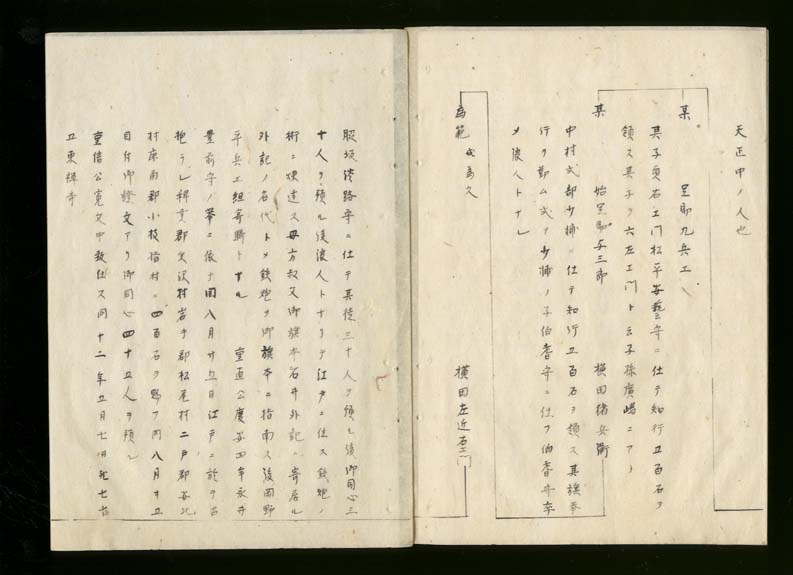 天正中ノ人也
某　　　足助九兵工
其子負右工門松平安藝守ニ仕テ知行五百石ヲ
領ス其子ヲ六左工門ト云子孫廣嶋ニアリ
某　　　始足助与三郎　　　横田猪兵衛
中村式部少輔ニ仕テ知行五百石ヲ領ス其旗奉
行ヲ勤ム式ア少輔ノ子伯耆守ニ仕フ伯耆守卒
メ浪人トナレ
為範　或為久　　　　　横田左近右工門
脇坂淡路守ニ仕テ其徒三十人ヲ預ル後御同心三
十人ヲ預ル後浪人トナリテ江戸ニ住ス鉄炮ノ
術ニ達ス母方叔父御旗本石井外記ニ寄居ル
外記ノ名代トメ鉄炮ヲ御旗本ニ指南ス後岡野
平兵工組寄騎トナル　　重直公慶安四年永井
豊前守ノ挙ニ依テ同八月廿五日江戸ニ於テ召
抱ラレ稗貫郡矢沢村岩手郡松尾村二戸郡
村麻郡小枝指村ニ四百石ヲ賜フ同八月廿五
日付御證文アリ御同心四十五人ヲ預レ
重信公寛文中致仕ス同十二年五月七日死七十
五東禅寺